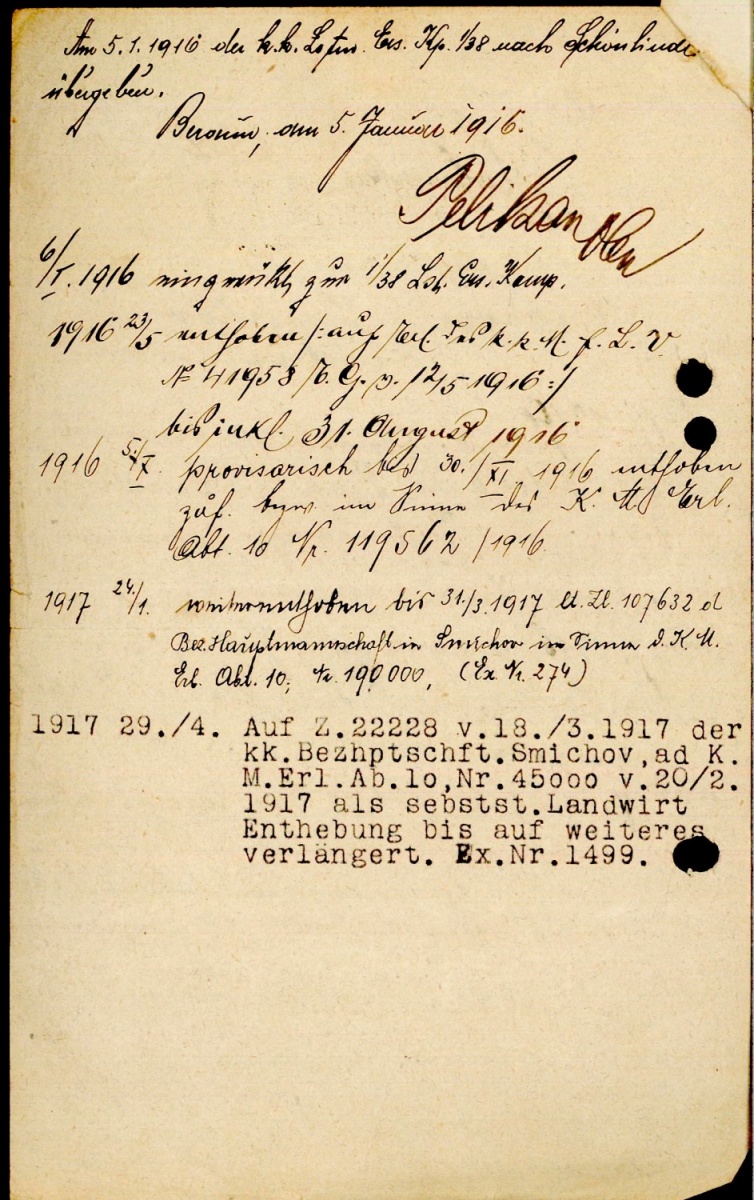 Am 5.1.1916 der k.k. Lstm. Ers. Kp. 1/38 nach Schönlinde
übergeben.
Beraun, am 5. Januar 1916.
Pelikan Oblt
6/I. 1916 eingerückt zur 1/38 Lst. Ers. Komp.
1916 23/5 enthoben /: auf Erl. des k.k. M. f. L. V
№ 41958 / v. 12/5 1916 :/
bis inkl. 31. August 1916
1916 5./X. provisorisch bis 30./XI. 1916 enthoben
zuf. bezw. im Sinne des K. M. Erl.
Abt. 10 Nr. 119562 /1916
1917 24./1. weiterenthoben bis 31./3.1917 lt. Zl. 107632 d
Bez. Hauptmannschaft in Smichov im Sinne d. K. M.
Erl. Abt. 10, Nr. 190000, (Ex. Nr. 274)
1917 29./4. Auf Z.22228 v.18./3.1917 der
kk.Bezhptschft.Smichov,ad K.
M.Erl.Ab.lo,Nr.45ooo v.20/2.
1917 als sebstst.Landwirt
Enthebung bis auf weiteres
verlängert. Ex.Nr.1499.